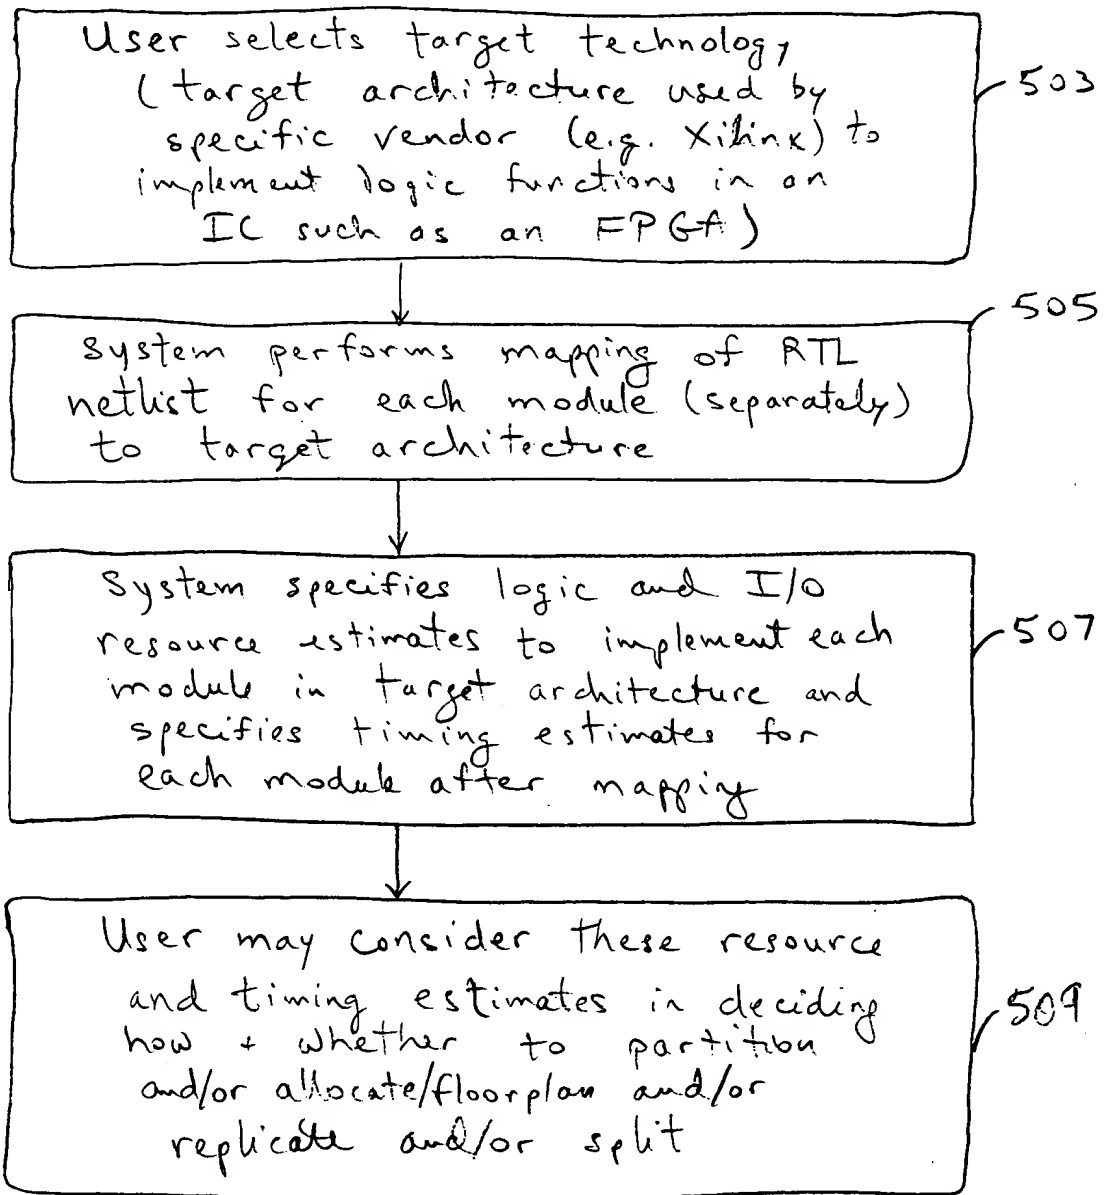 User selects target technology
(target architecture used by
503
specific vendor (e.g. Xilinx) to
implement logic functions in an
IC such as an FPGA)
505
System performs mapping of RTL
netlist for each module (separately)
to target architecture
System specifies logic and I/O
resource estimates to implement each
507
module in target architecture and
specifies timing estimates for
each module after mapping
User may consider these resource
and timing estimates in deciding
509
how + whether to partition
and/or allocate/floorplan and/or
replicate and/or split